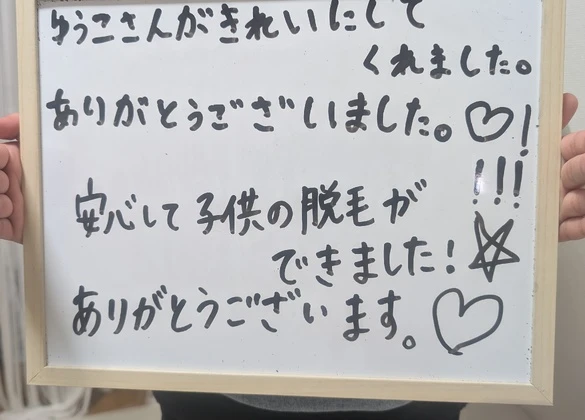 ゆうこさんがきれいにして
くれました。
ありがとうございました。♡!
!!!
安心して子供の脱毛が
できました!☆
ありがとうございます。♡